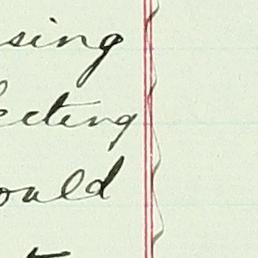 sing
ecting
ould